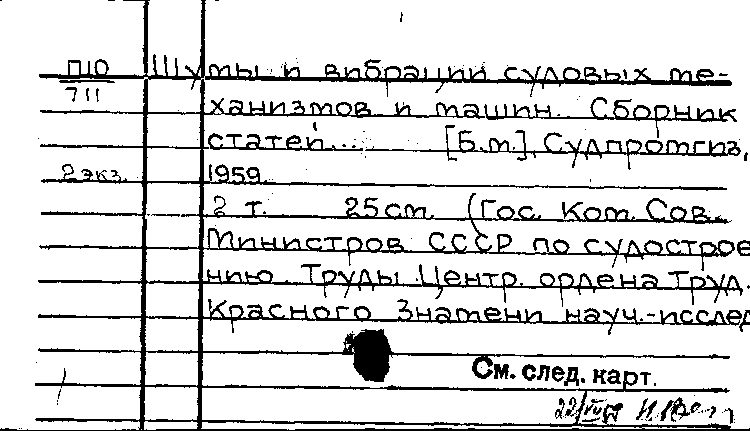 П10 Шумы и вибрации судовых ме-
711
ханизмов и машин. Сборник
статей... [Б.м.], Судпромгиз,
2 экз. 1959.
2 т. 25 см. (Гос. Ком. Сов.
Министров СССР по судострое
нию. Труды Центр. ордена Труд.
Красного Знамени науч.-исслед
См. след. карт.